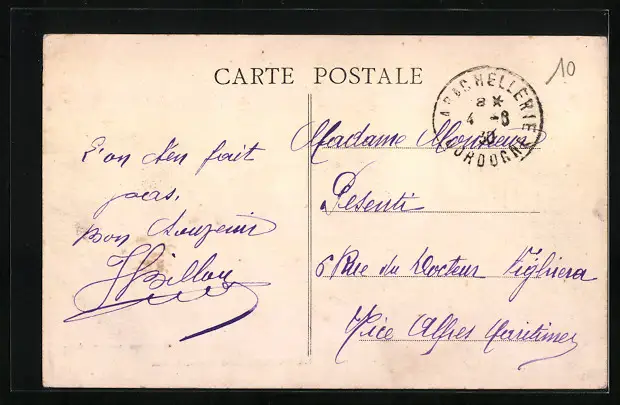 CARTE POSTALE
10
LABACHELLERIE
8 *
4 - 8
30
DORDOGNE
L'on s'en fait
pas.
Bon Souvenir
JBillou
Madame Monsieur
Pesenti
6 Rue du Docteur Fighiera
Nice Alpes Maritimes